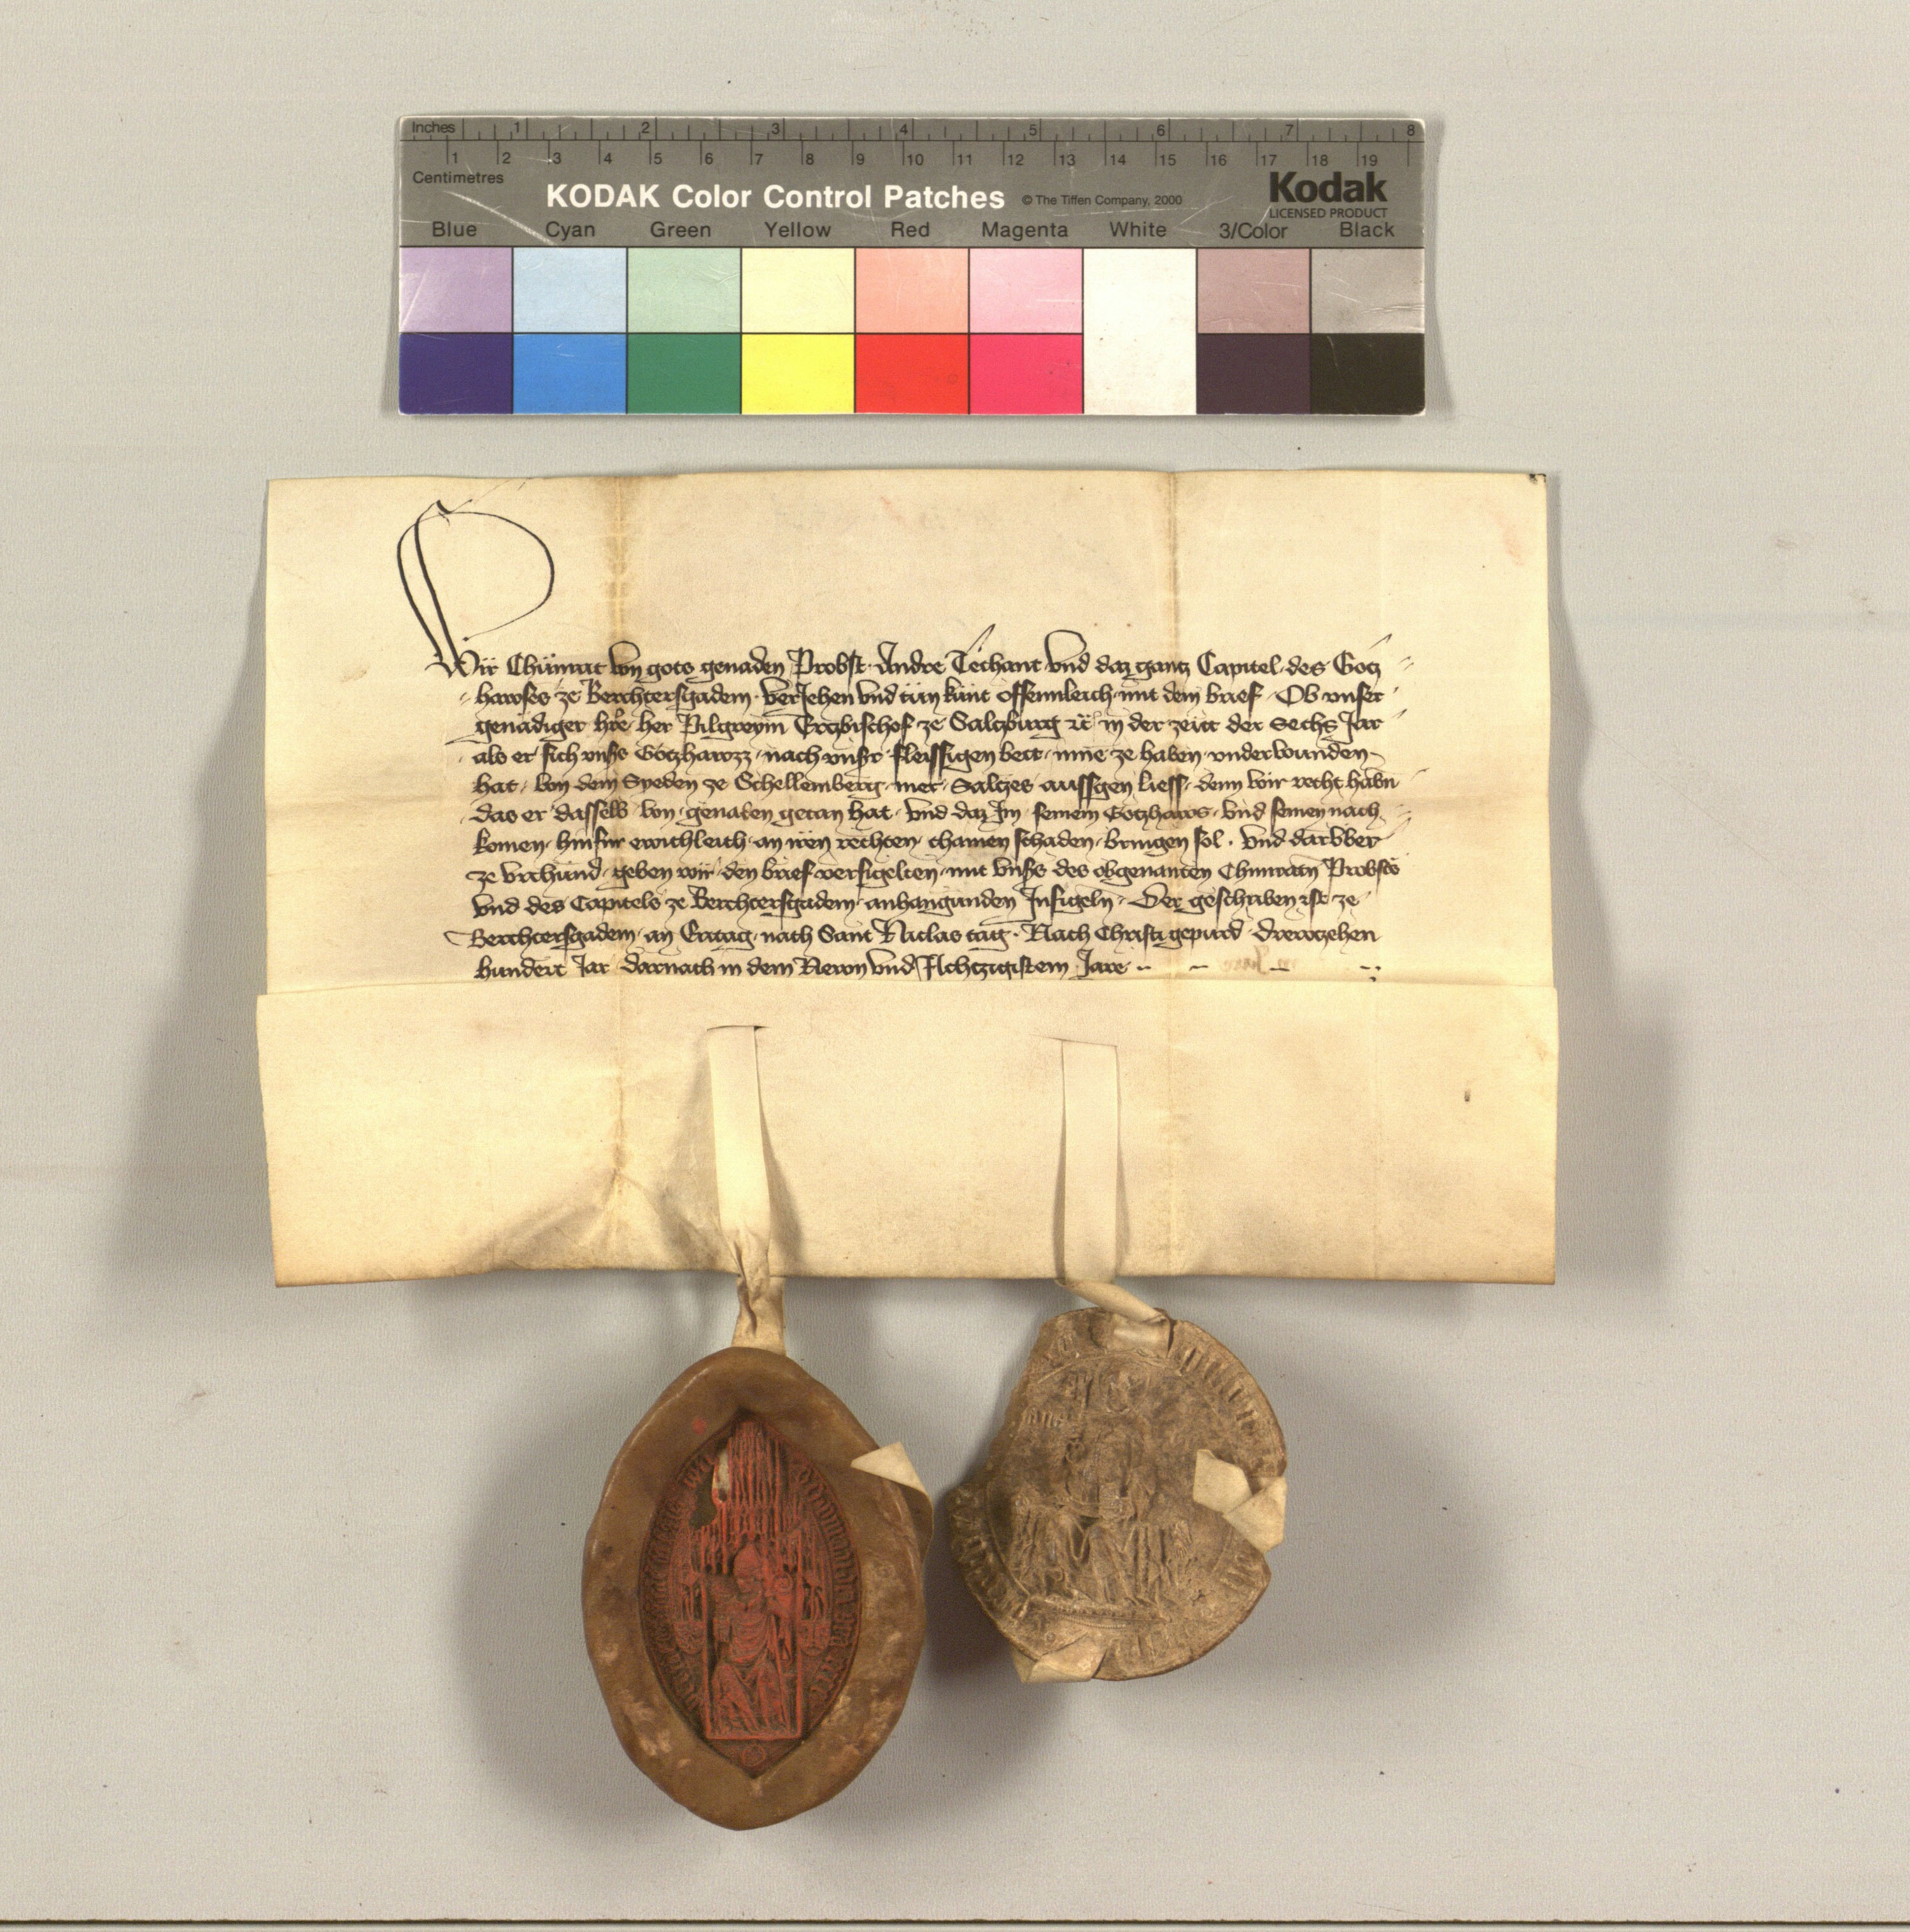 Inches 1 2 3 4 5 6 7 8
1 2 3 4 5 6 7 8 9 10 11 12 13 14 15 16 17 18 19
Centimetres
KODAK Color Control Patches © The Tiffen Company, 2000 Kodak
LICENSED PRODUCT
Blue Cyan Green Yellow Red Magenta White 3/Color Black
Wir Chünrat von gots genaden Probst · Andre Techant vnd daz gantz Capitel · des Gotz
hawses ze Berchtersgadem · veriehen vnd tün künt offennleich · mit dem brief · Ob vnser
genädiger hre her Pilgreym Ertzbischof ze Saltzburg in der zeitt der Sechs Jar
als er sich vnss Gotzhawzz · nach vnsr fleissigen bett · inne ze haben · vnderwunden
hat · von dem Syeden ze Schellemberg · mer · Saltzes aussgen liess · denn wir recht habn
das er dasselb von · genaden getan hat · vnd daz Im seinem Gotzhaws · vnd seinen nach
komen · hinfür ewichleich · an iren rechten · chainen schaden · bringen sol · vnd darüber
ze vrchünd · geben wir den brief versigelten · mit vnsß des obgenanten Chunratn Probsts
vnd des Capitels ze Berchtersgadem · anhangunden Insigeln · Der geschriben ist · ze
Berchtersgadem · an Eritag · nach Sant Niclas tag · Nach Christi gepurd drewzehen
hundert Jar darnach in dem Newn vnd Achtzigistem Jare